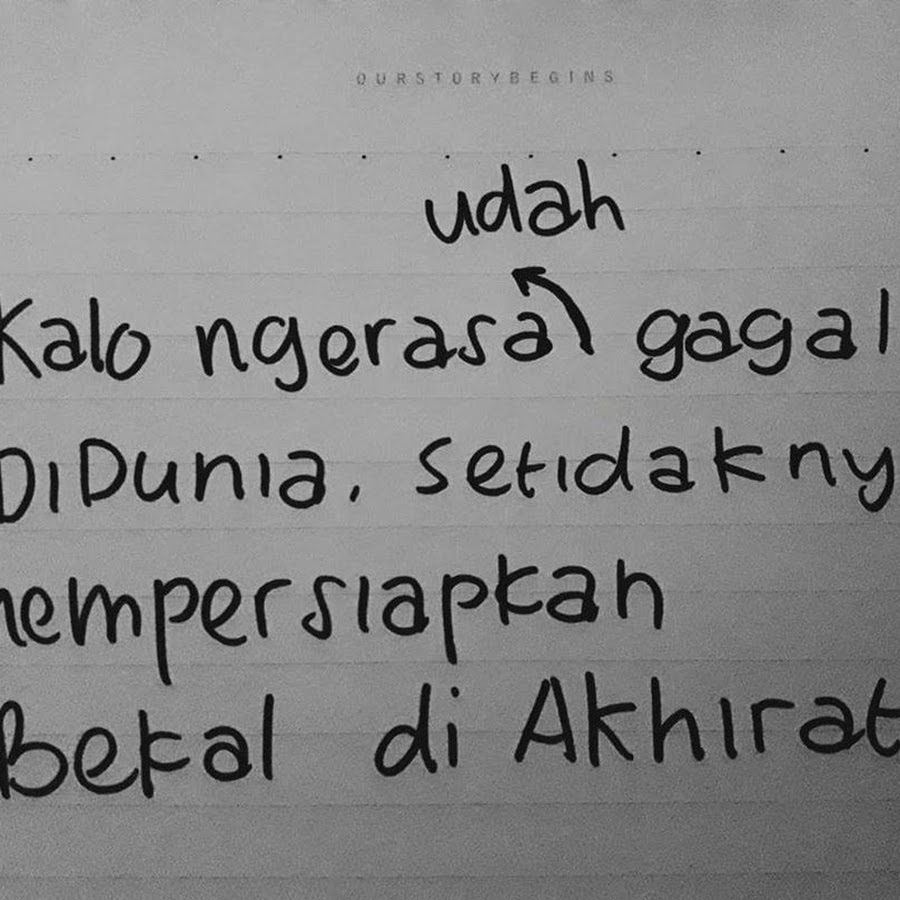 OURSTORYBEGINS
udah
Kalo ngerasa gagal
DiDunia, setidakny
mempersiapkan
Bekal di Akhirat